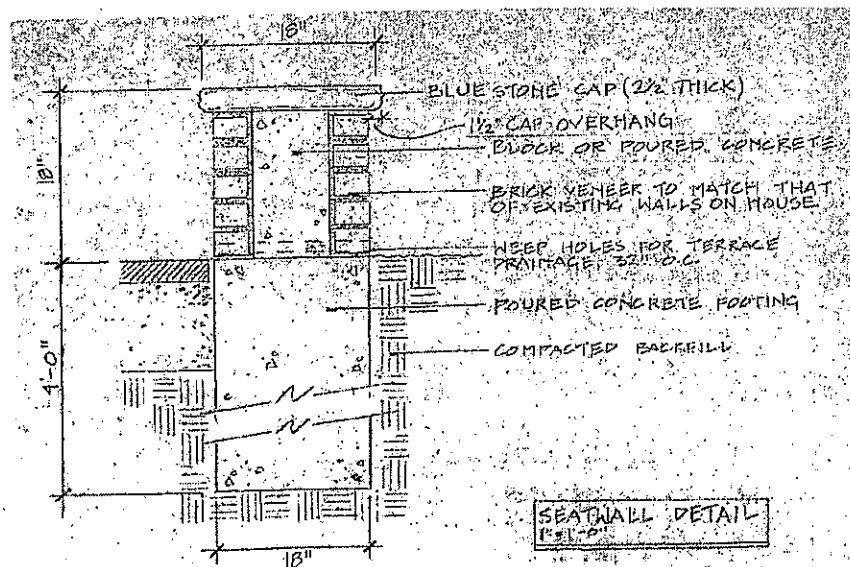 18"
BLUE STONE CAP (2½" THICK)
1½" CAP OVERHANG
BLOCK OR POURED CONCRETE
18"
BRICK VENEER TO MATCH THAT
OF EXISTING WALLS ON HOUSE
WEEP HOLES FOR TERRACE
DRAINAGE, 32" O.C.
POURED CONCRETE FOOTING
COMPACTED BACKFILL
4'-0"
SEATWALL DETAIL
1"=1'-0"
18"